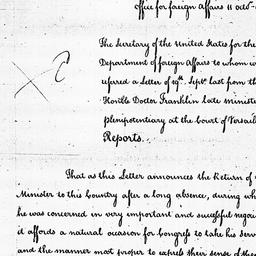 office for foreign Affairs 11 octo
The Secretary of the United States for the
Department of foreign Affairs to whom w
eferred a Letter of 19th. Septr last from th
Honble Doctor Franklin late ministe
plenipotentiary at the Court of Versail
Reports.
That as this Letter announces the Return of
Minister to this Country after a long absence, during wh
he was concerned in very important and successful negoci
it affords a natural occasion for Congress to take his serv
and the manner most proper to express their sense of the